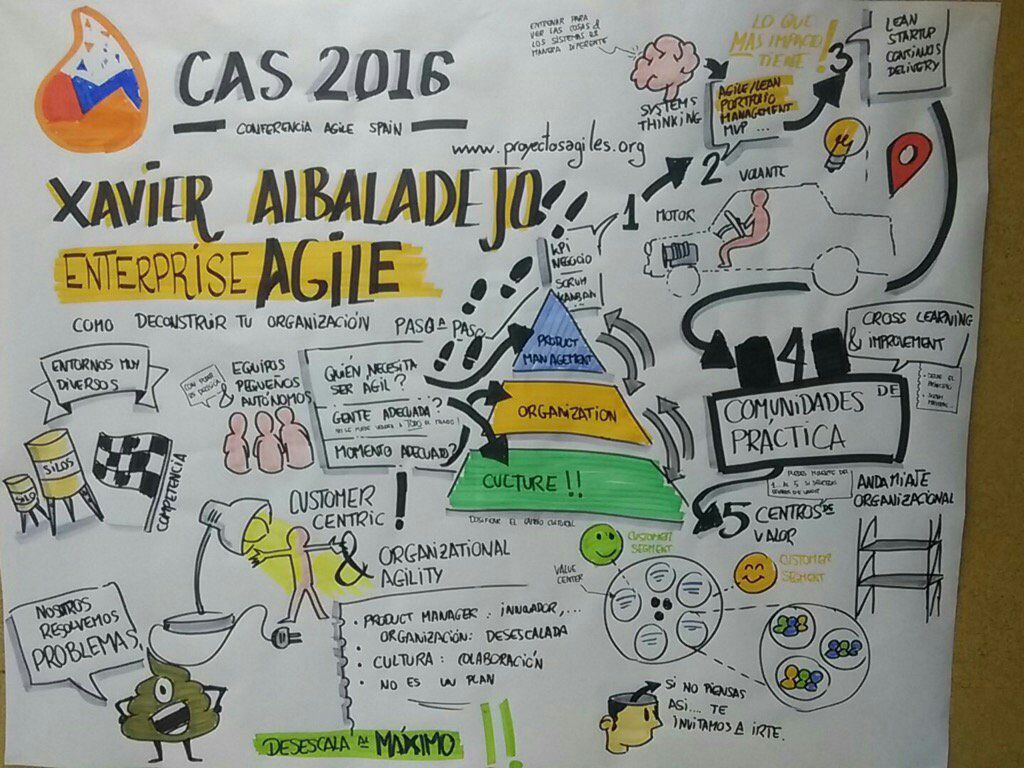 CAS 2016
CONFERENCIA AGILE SPAIN
www.proyectosagiles.org
XAVIER ALBALADEJO
ENTERPRISE AGILE
COMO DECONSTRUIR TU ORGANIZACIÓN PASO A PASO
ENTRENAR PARA
VER LAS COSAS &
LOS SISTEMAS DE
MANERA DIFERENTE
SYSTEMS
THINKING
LO QUE
MAS IMPACTO
TIENE!
AGILE/LEAN
PORTFOLIO
MANAGEMENT
MVP ...
3
LEAN
STARTUP
CONTINUOS
DELIVERY
1
2
VOLANTE
MOTOR
KPI
NEGOCIO
SCRUM
KANBAN
PRODUCT
MANAGEMENT
ORGANIZATION
CULTURE!!
DOSIFICAR EL CAMBIO CULTURAL
ENTORNOS MUY
DIVERSOS
SILO
SILOS
COMPETENCIA
EQUIPOS
PEQUEÑOS
& AUTÓNOMOS
QUIÉN NECESITA
SER AGIL?
GENTE ADECUADA?
MOMENTO ADECUADO?
4
CROSS LEARNING
& IMPROVEMENT
COMUNIDADES DE
PRÁCTICA
5 CENTROS DE
VALOR
ANDAMIATE
ORGANIZACIONAL
CUSTOMER
CENTRIC !
& ORGANIZATIONAL
AGILITY
VALUE
CENTER
CUSTOMER
SEGMENT
CUSTOMER
SEGMENT
NOSTROS
RESOLVEMOS
PROBLEMAS
• PRODUCT MANAGER: INNOVADOR,...
• ORGANIZACIÓN: DESESCALADA
• CULTURA: COLABORACIÓN
• NO ES UN PLAN
DESESCALA AL MÁXIMO !!
SI NO PIENSAS
ASI.... TE
INVITAMOS A IRTE.